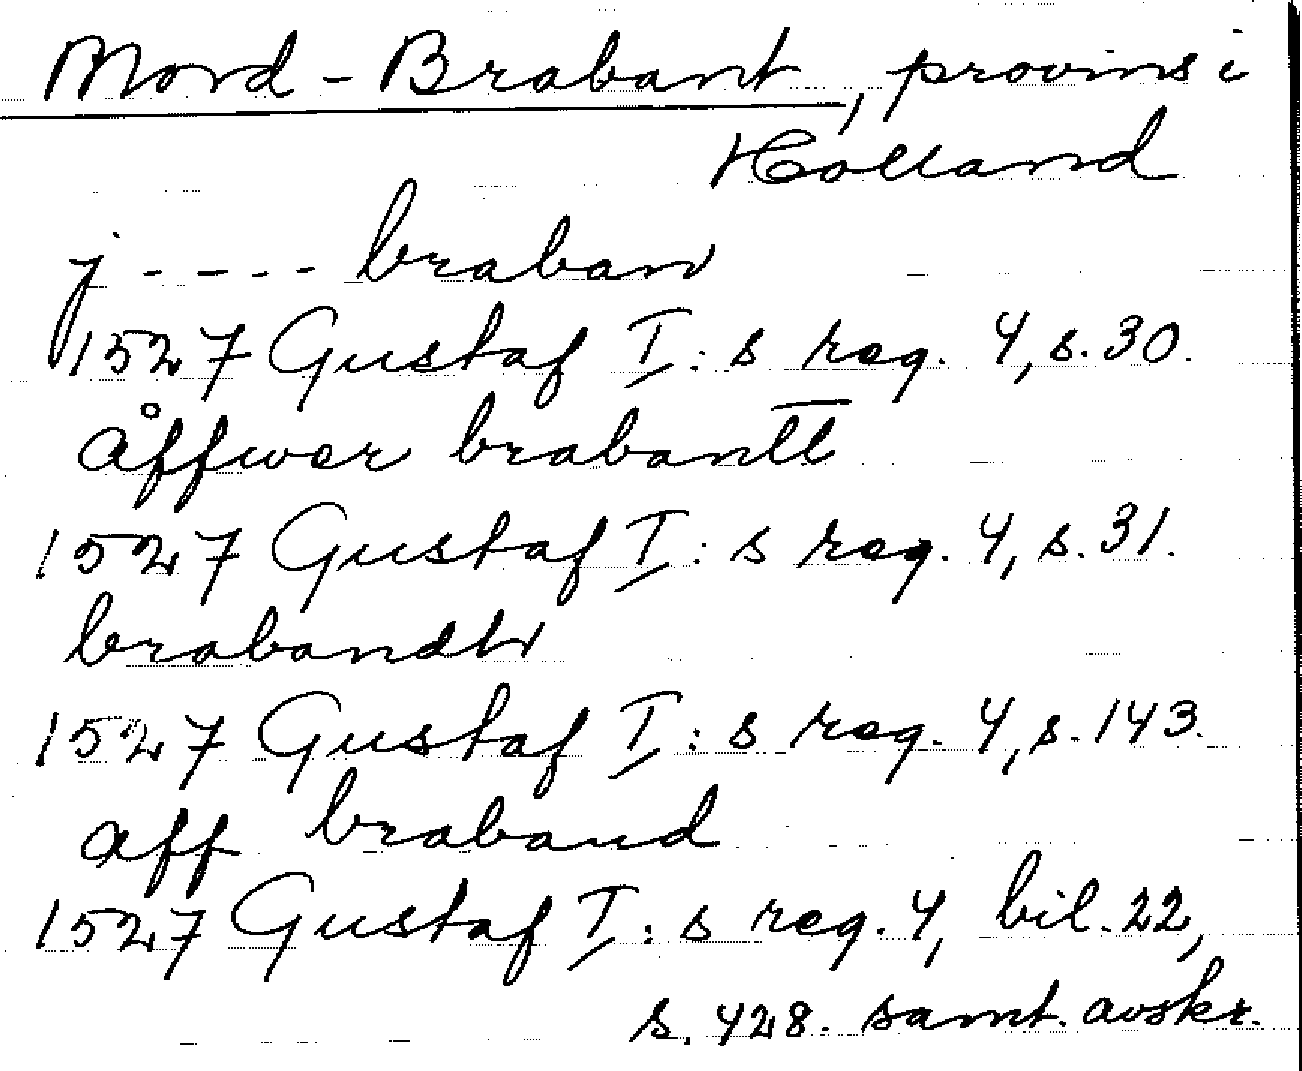 Nord-Brabant, provins i
Holland
j ---- braban
1527 Gustaf I:s reg. 4, s. 30.
åffwer brabantt
1527 Gustaf I:s reg. 4, s. 31.
brabandh
1527 Gustaf I:s reg. 4, s. 143.
aff braband
1527 Gustaf I:s reg. 4, bil. 22,
s. 428. samt. avskr.